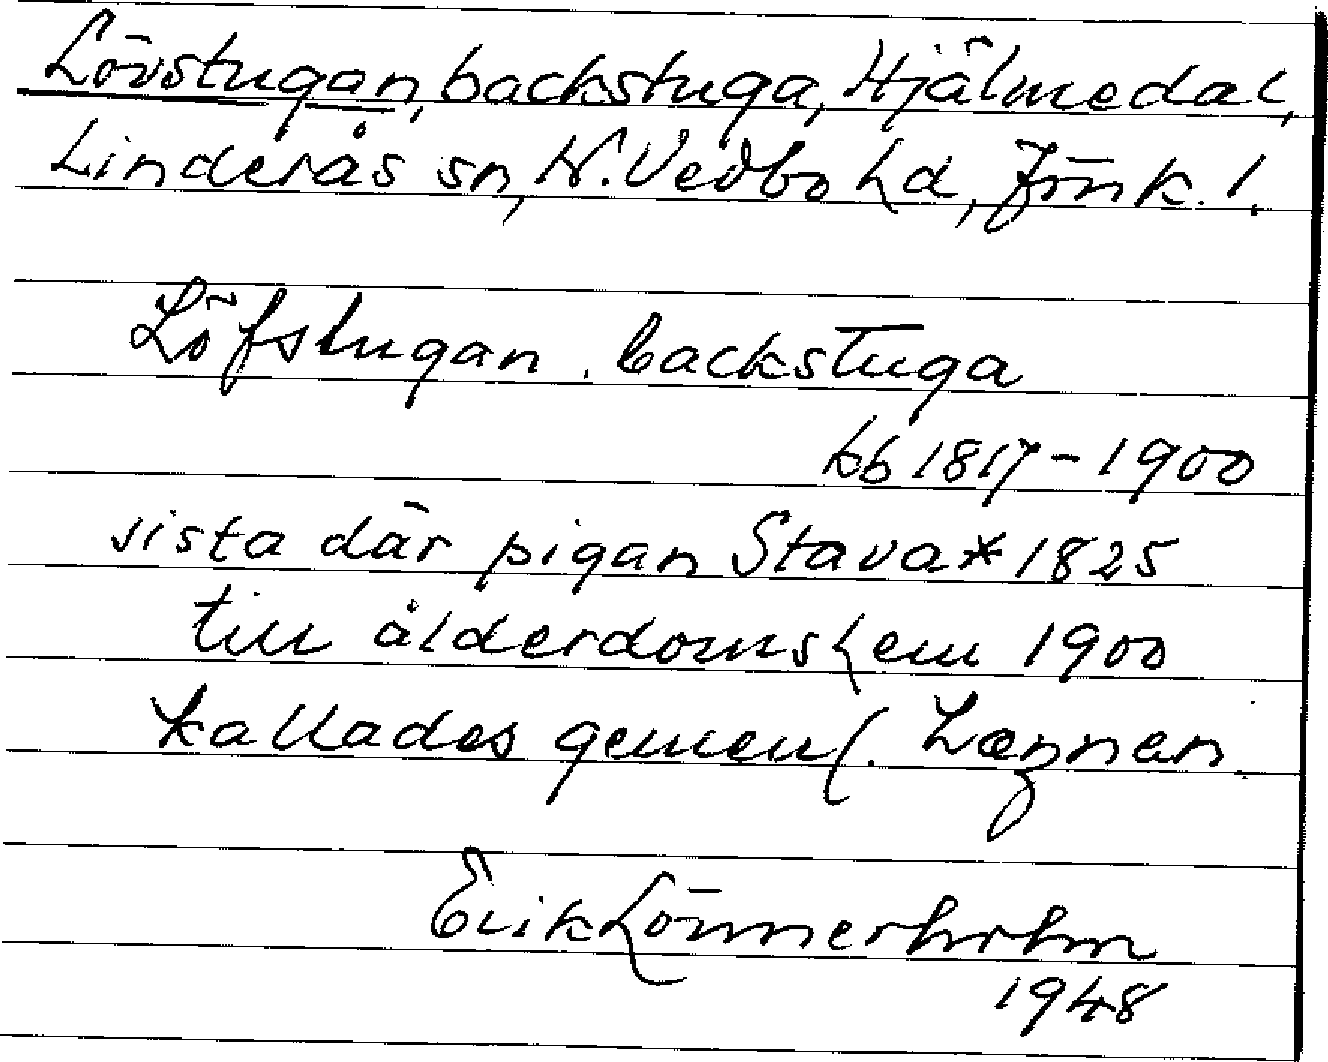 Lövstugan, backstuga, Hjälmedal,
Linderås sn, N. Vedbo hd, Jönk. l.
Löfstugan, backstuga
kb 1817-1900
sista där pigan Stava * 1825
till ålderdomshem 1900
kallades gemenl.
Erik Lönnerholm
1948